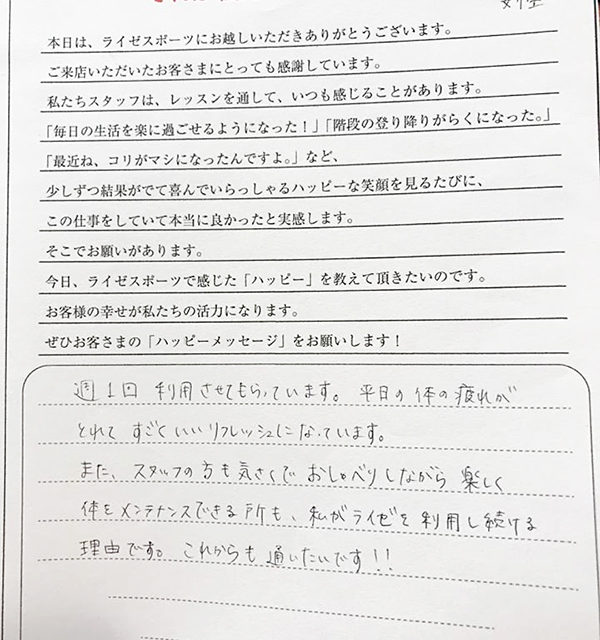 女性
本日は、ライゼスポーツにお越しいただきありがとうございます。
ご来店いただいたお客さまにとっても感謝しています。
私たちスタッフは、レッスンを通して、いつも感じることがあります。
「毎日の生活を楽に過ごせるようになった！」「階段の登り降りがらくになった。」
「最近ね、コリがマシになったんですよ。」など、
少しずつ結果がでて喜んでいらっしゃるハッピーな笑顔を見るたびに、
この仕事をしていて本当に良かったと実感します。
そこでお願いがあります。
今日、ライゼスポーツで感じた「ハッピー」を教えて頂きたいのです。
お客様の幸せが私たちの活力になります。
ぜひお客さまの「ハッピーメッセージ」をお願いします！
週1回 利用させてもらっています。平日の体の疲れが
とれて すごくいいリフレッシュになっています。
また、スタッフの方も気さくで おしゃべりしながら 楽しく
体をメンテナンスできる所も、私がライゼを利用し続ける
理由です。これからも通いたいです!!